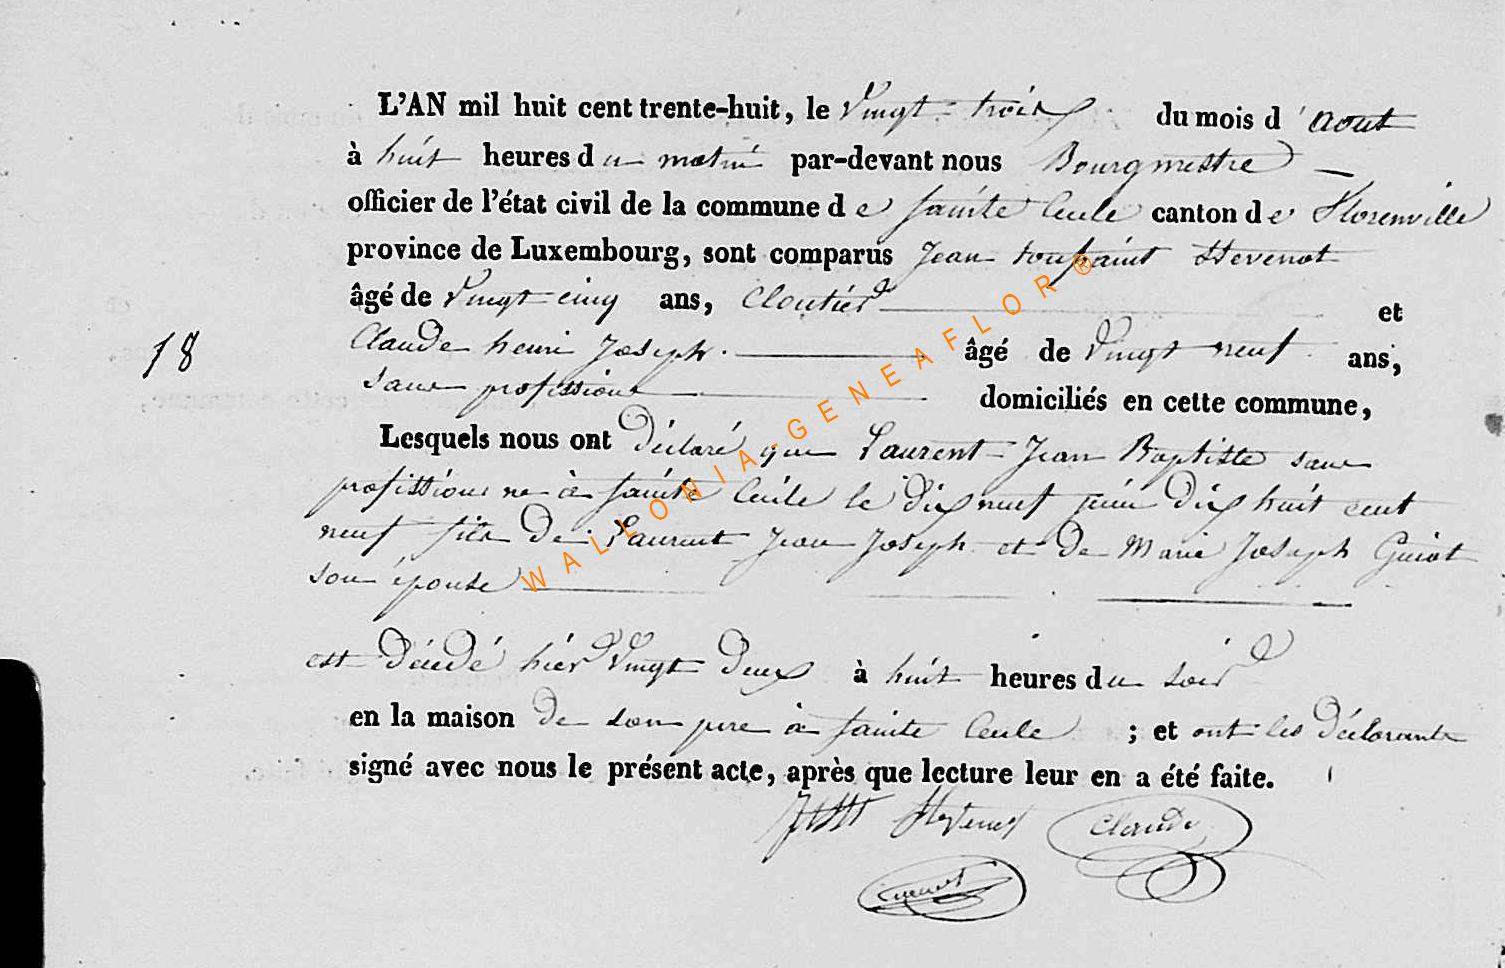 L'AN mil huit cent trente-huit, le Vingt-trois du mois d'Aout
à huit heures du matin par-devant nous Bourgmestre
officier de l'état civil de la commune de Sainte Cecile canton de Florenville
province de Luxembourg, sont comparus Jean toussaint Stevenot
âgé de Vingt cinq ans, Cloutier et
18
Claude henri Joseph. âgé de Vingt neuf ans,
sans professions domiciliés en cette commune,
Lesquels nous ont Déclaré que Laurent Jean Baptiste sans
professions né à Sainte Cecile le Dix neuf juin Dix huit cent
neuf fils De Laurent Jean Joseph et de Marie Joseph Guiot
son épouse
est Décédé hier Vingt Deux à huit heures du soir
en la maison de son pere à Sainte Cecile ; et ont les Déclarants
signé avec nous le présent acte, après que lecture leur en a été faite.
Stevenot Claude
WALLONIA-GENEAFLOR®